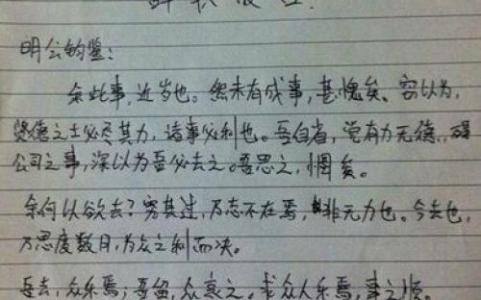 辞职报告:
明公的鉴:
余此事,近岁也。然未有成事,甚愧矣。窃以为,
贤德之士必尽其力,诸事必利也。吾自省,觉有力无德,
公司之事,深以为吾必去之。吾思之,惆矣。
余何以欲去?穷其过,乃志不在焉,非无力也。今去也,
乃思度数月,为众之利而决。
吾去,众乐焉;吾留,众哀之。求众人乐焉,事之顺